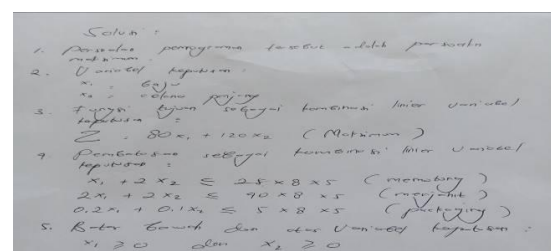 Solusi :
1. Persoalan pemrograman tersebut adalah persoalan
maksimum.
2. Variabel keputusan :
x₁ = baju
x₂ = celana panjang
3. Fungsi tujuan sebagai kombinasi linier variabel
keputusan :
Z = 80x₁ + 120x₂ (Maksimum)
4. Pembatasan sebagai kombinasi linier variabel
keputusan :
x₁ + 2x₂ ≤ 25 x 8 x 5 (memotong)
2x₁ + 2x₂ ≤ 40 x 8 x 5 (menjahit)
0.2x₁ + 0.1x₂ ≤ 5 x 8 x 5 (packaging)
5. Batas bawah dan atas variabel keputusan :
x₁ ≥ 0 dan x₂ ≥ 0